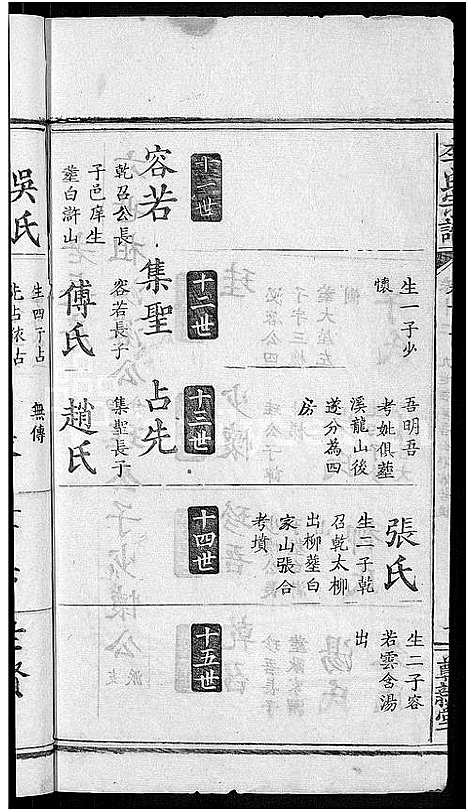 李氏宗譜
生一子少
懷
吾明吾
考妣俱塟
溪龍山後
遂分為四
房
張氏
生二子乾
召乾太柳
出柳塟白
家山張合
考墳
生二子容
若雲含湯
出
十一世
十二世
十三世
十四世
十五世
容若
乾召公長
子邑庠生
塟白滸山
集聖
容若長子
傅氏
占先
集聖長子
趙氏
吳氏
生四子占
先占依占
無傳